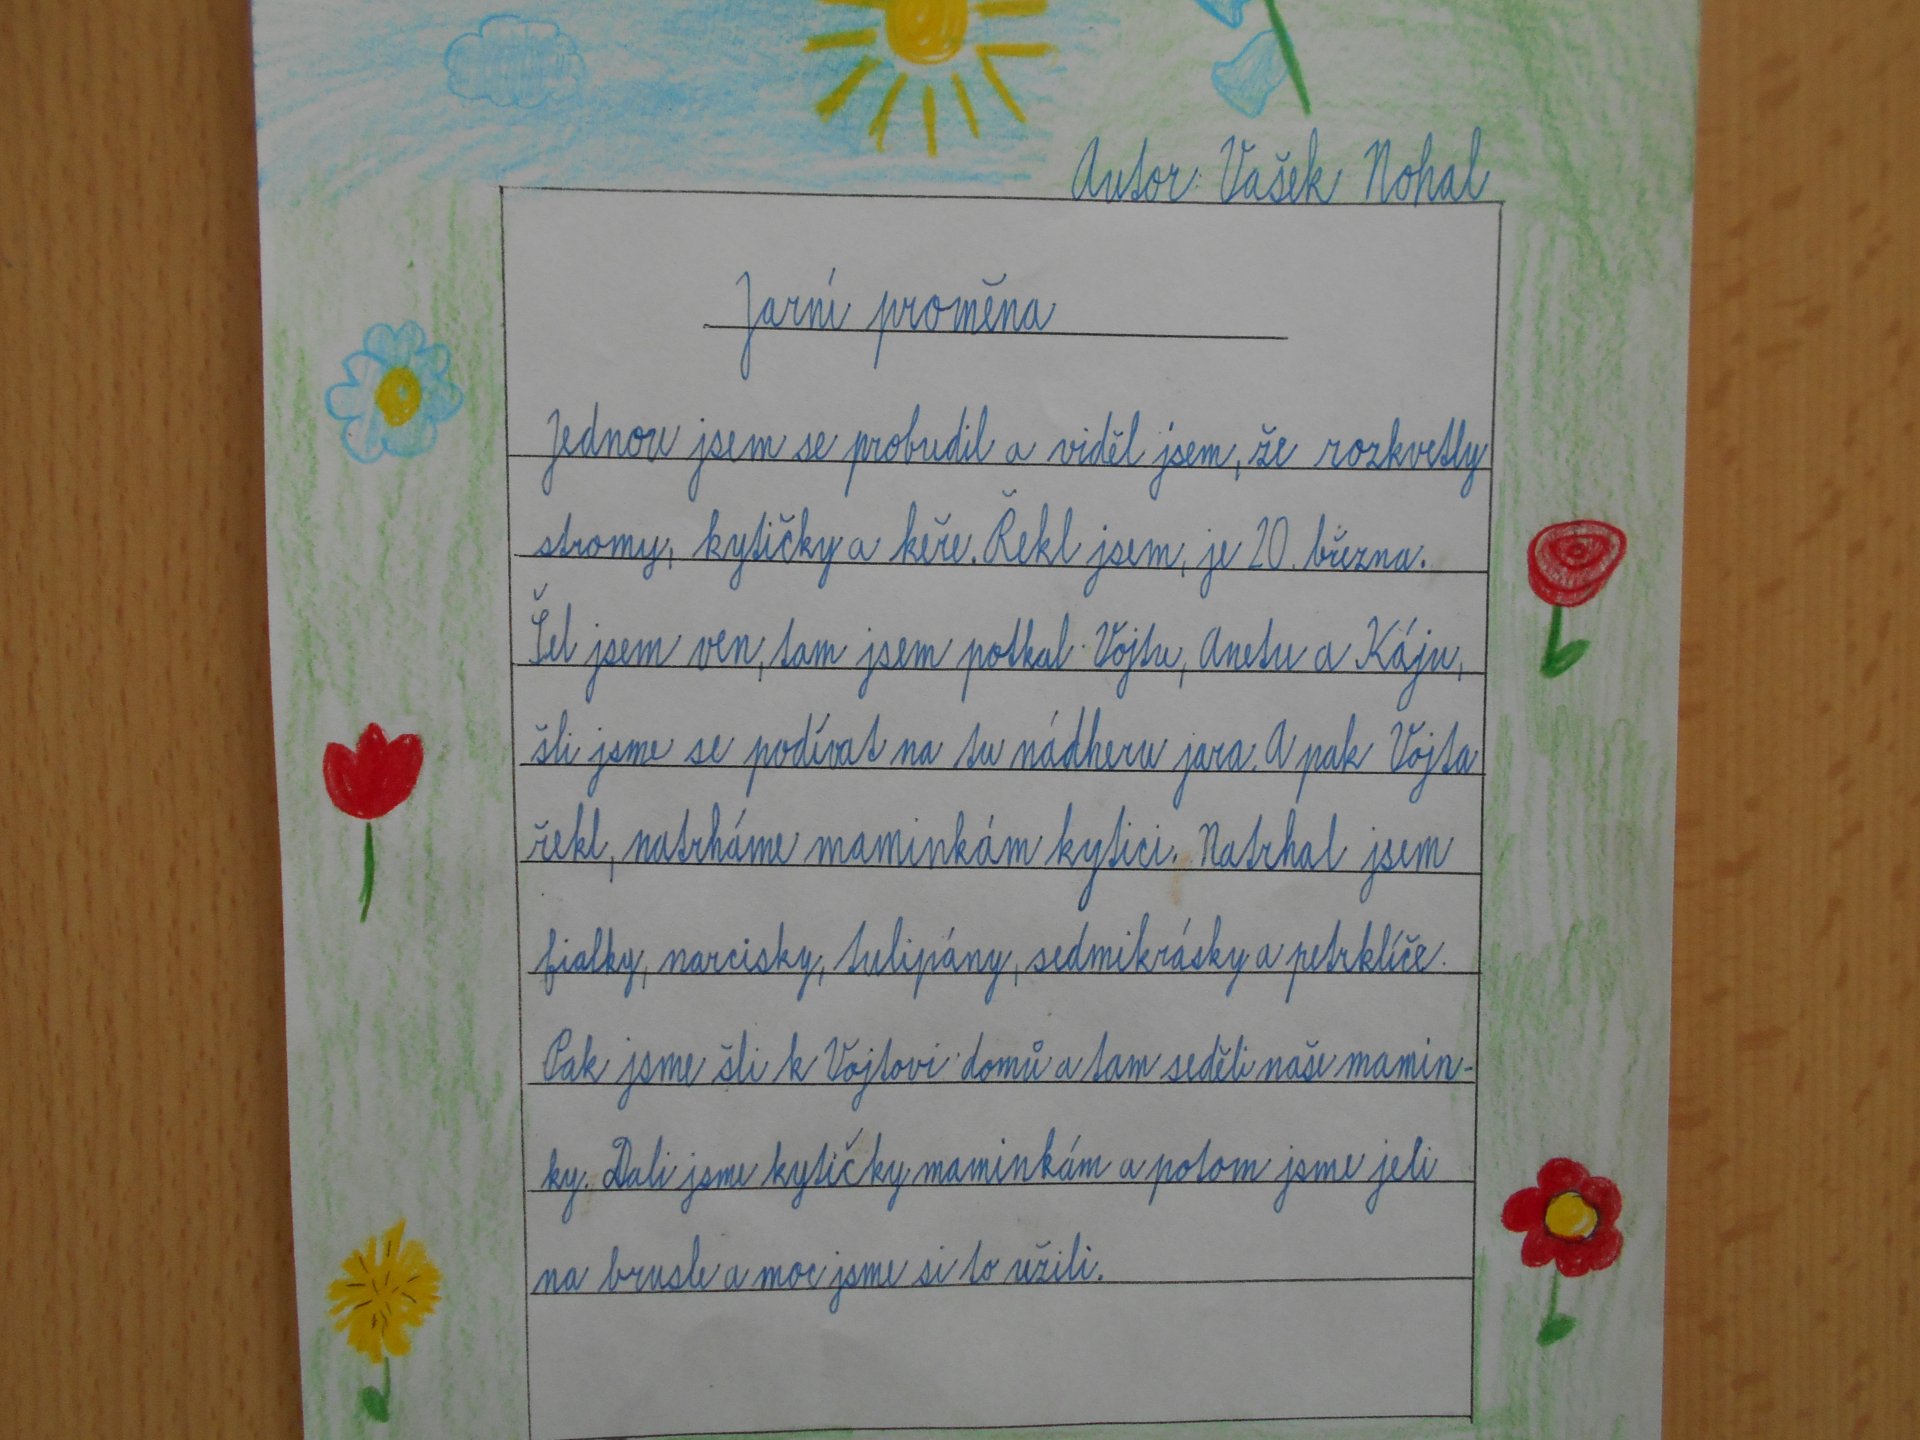 Autor: Vašek Nohal
Jarní proměna
Jednou jsem se probudil a viděl jsem, že rozkvetly
stromy, kytičky a keře. Řekl jsem, je 20. března.
Šel jsem ven, tam jsem potkal Vojtu, Anetu a Káju,
šli jsme se podívat na tu nádheru jara. A pak Vojta
řekl, natrháme maminkám kytici. Natrhal jsem
fialky, narcisky, tulipány, sedmikrásky a petrklíče.
Pak jsme šli k Vojtovi domů a tam seděli naše mamin-
ky. Dali jsme kytičky maminkám a potom jsme jeli
na brusle a moc jsme si to užili.